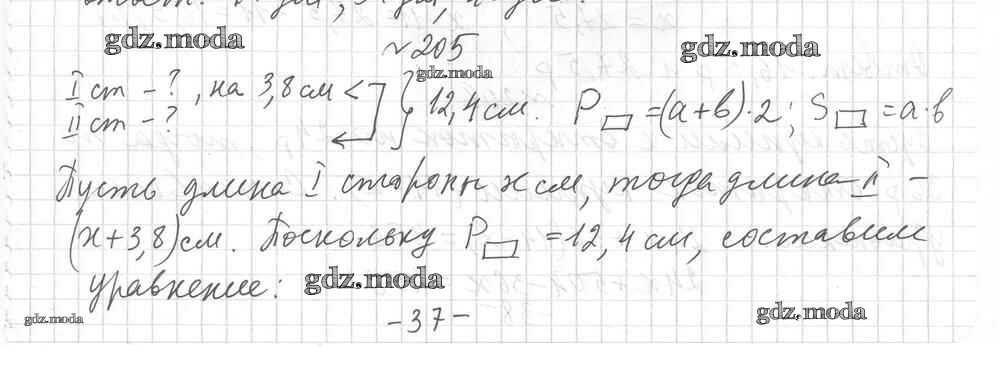 gdz.moda
№ 205
gdz.moda
I ст - ?, на 3,8 см < } 12,4 см. P▭ = (a+b)·2; S▭ = a·b
gdz.moda
II ст - ?
Пусть длина I стороны x см, тогда длина II -
(x+3,8) см. Поскольку P▭ = 12,4 см, составим
уравнение:
gdz.moda
gdz.moda
- 37 -
gdz.moda